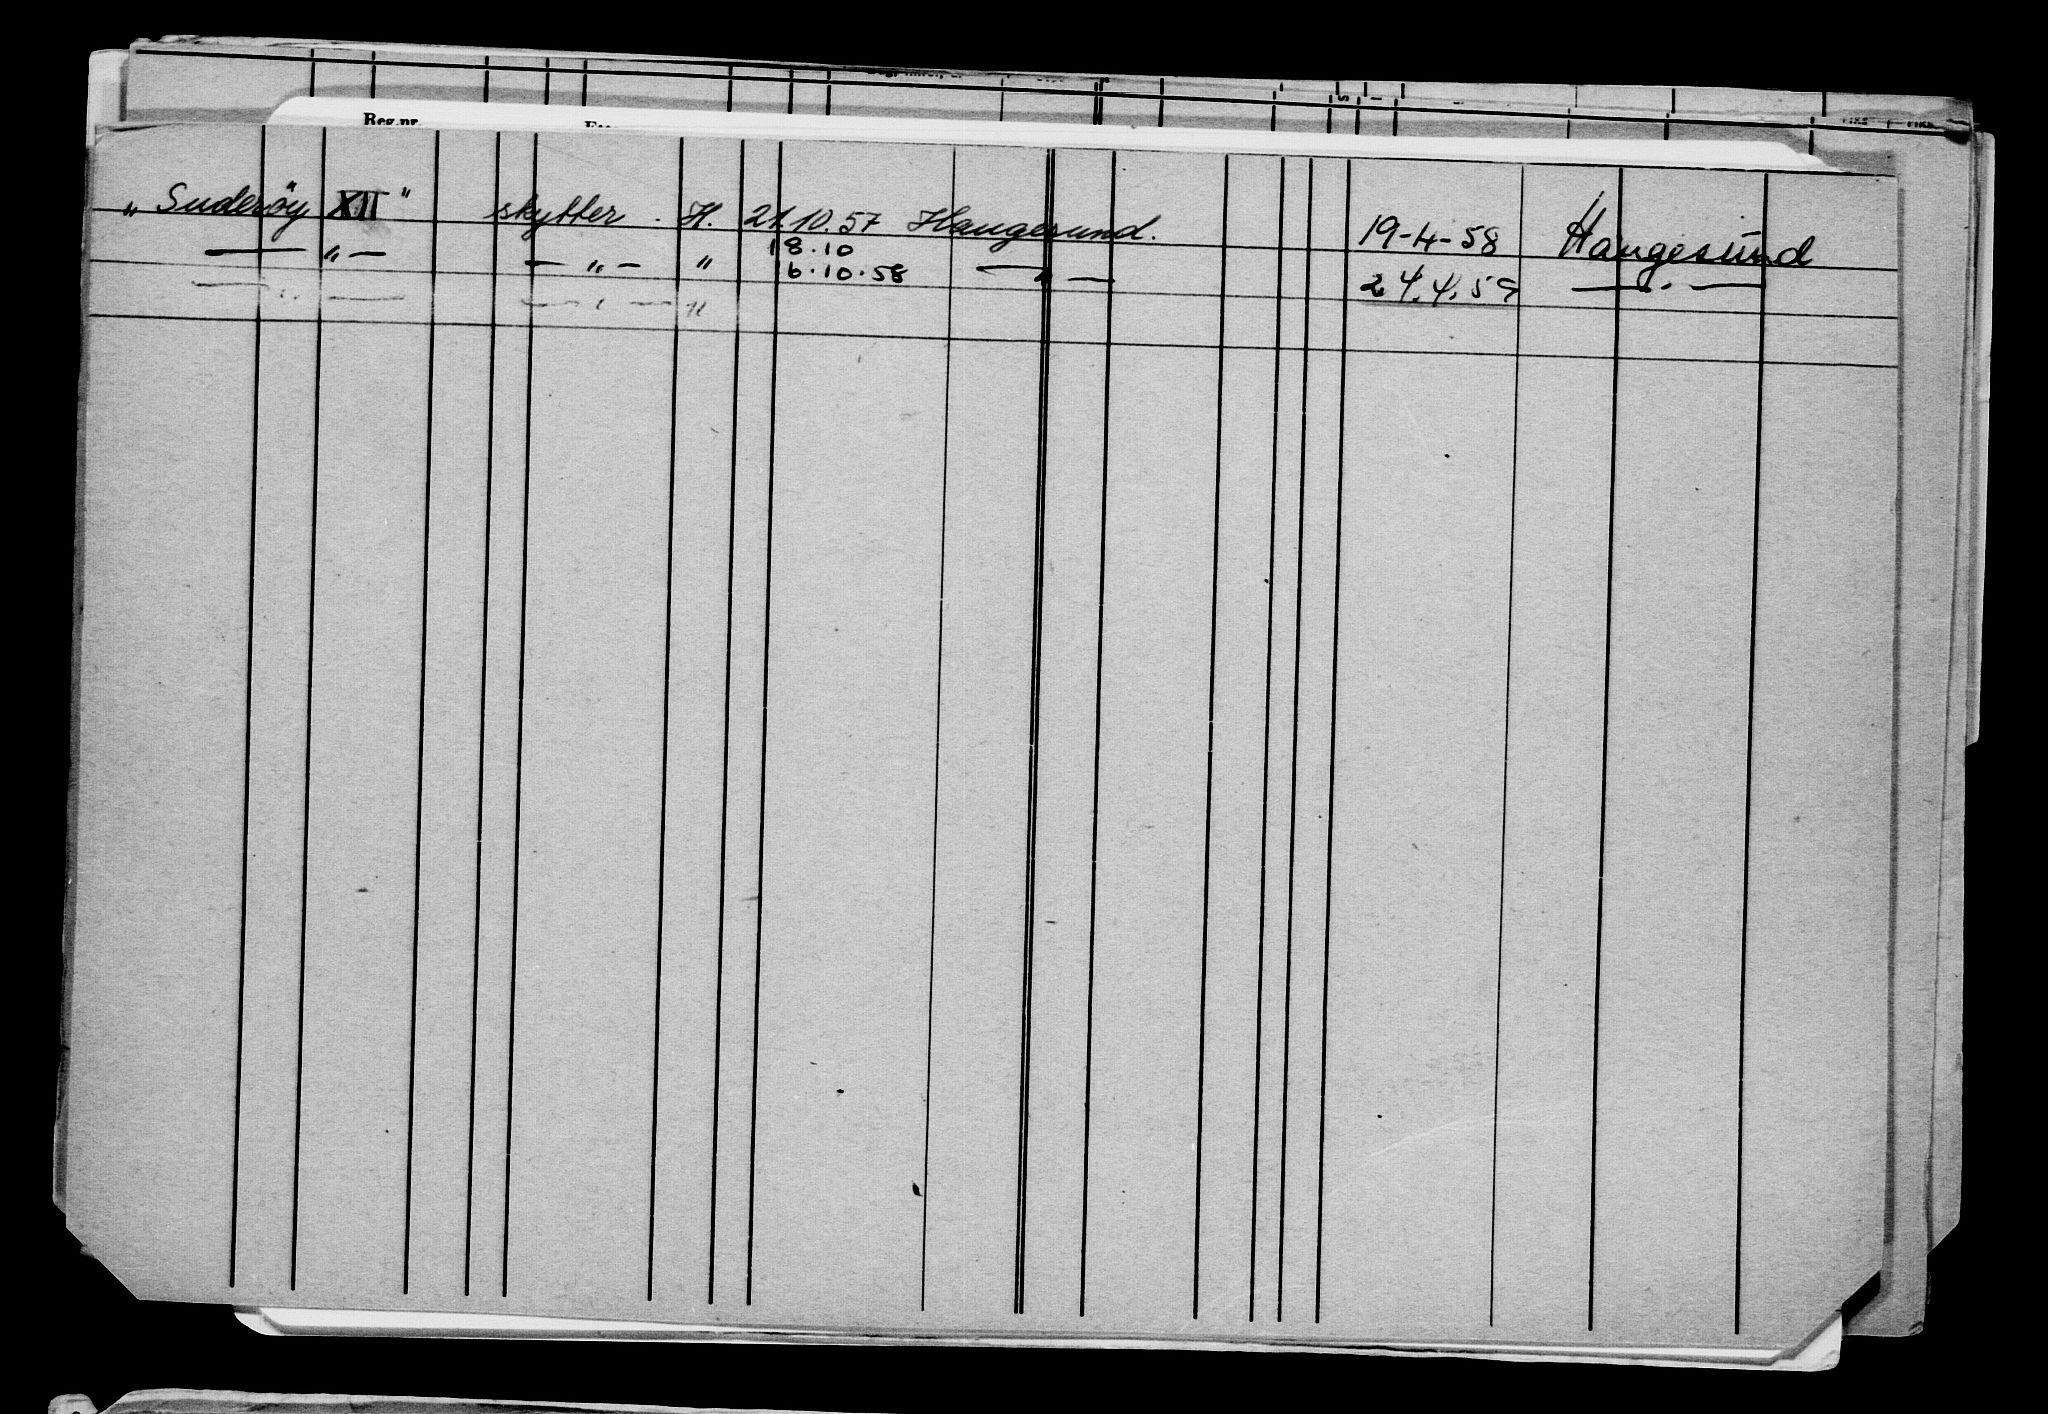 Reg.nr.
„Suderöy XII" skytter. H. 21.10.57 Haugesund. 19-4-58 Haugesund
— „ — — „ — " 18.10
16.10.58 — „ — 24.4.59 — „ —
— „ — — „ — H